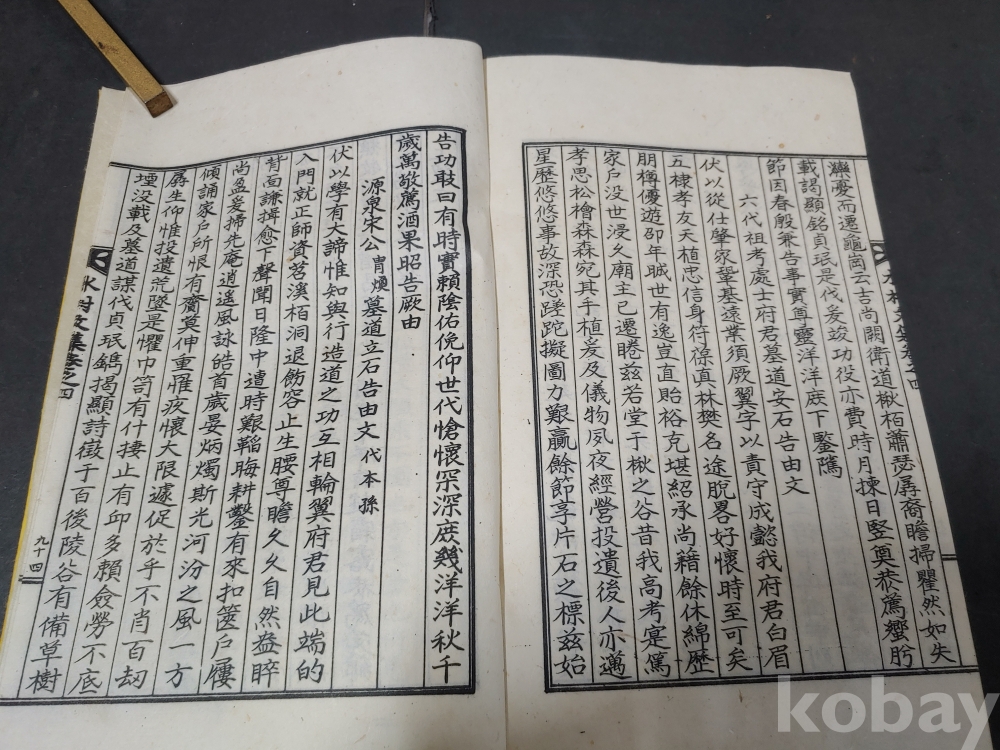 濟憂而遷龜崗云吉尚闕衛道楸栢蕭瑟孱裔瞻掃瞿然如失
載謁顯銘貞珉是伐爰竣功役亦費時月揀日竪奠菾薦蠁肹
節因春殷兼告事實尊靈洋洋庶下鑒隲
六代祖考處士府君墓道安石告由文
伏以從仕肇家鞏基遠業須厥翼字以責守成懿我府君白眉
五棣孝友天植忠信身符葆眞林樊名途脫畧好懷時至可矣
朋樽優遊卲年晠世有逸豈直貽裕克堪紹承尚籍餘休綿歷
家戶没世浸久廟主已遷睠茲若堂于楸之谷昔我高考寔篤
孝思松檜森森宛其手植爰及儀物夙夜經營投遺後人亦邁
星歷悠悠事故深恐蹉跎擬圖力艱贏餘節享片石之標茲始
告功敢曰有時實賴陰佑俛仰世代愴懷罙深庶幾洋洋秋千
歲萬敬薦酒果昭告厥由
源泉宋公胄煥墓道立石告由文 代本孫
伏以學有大諦惟知與行造道之功互相輪翼府君見此端的
入門就正師資笤溪栢洞退飭容止生腰尊瞻久久自然益睟
背面謙揖愈下聲聞日隆中遭時艱韜晦耕鑿有來扣篋戶屨
尚盈爰掃先庵逍遥風詠皓首歲晏炳燭斯光河汾之風一方
傾誦家戶所恨有齎莫伸重罹疚懷大限遽促於乎不肖百刼
孱生仰惟投遺荒墜是懼巾笥有什捿止有卹多賴僉勞不底
堙没載及墓道謀代貞珉鐫揭顯詩徵于百後陵谷有備草樹
水村文集卷之四
九十四
kobay